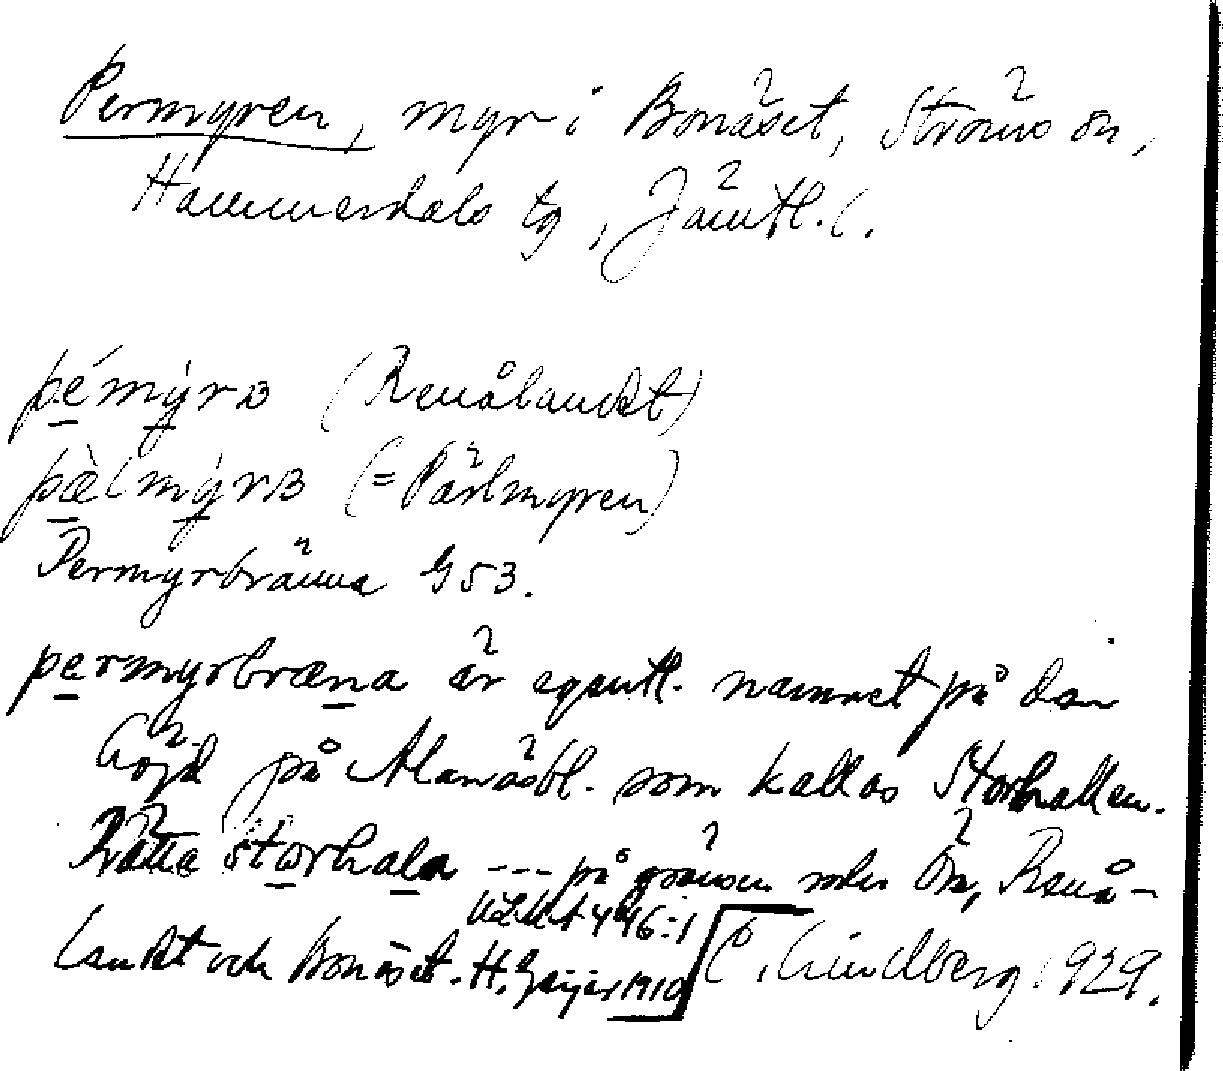 Permyren, myr i Bonäset, Ströms sn,
Hammerdals tg, Jämtl. l.
pémỳrɜ (Renålandet)
pæ̀lmỳrɜ (= Pärlmyren)
Permyrbränna G53.
permyrbræna är egentl. namnet på den
höjd på Alanäsbl. som kallas Storhallen.
Rätta storhala --- på gränsen mellan Ön, Renå-
landet och Bonäset. H. Geijer 1910
ULMA 446:1
C. Lindberg 1929.